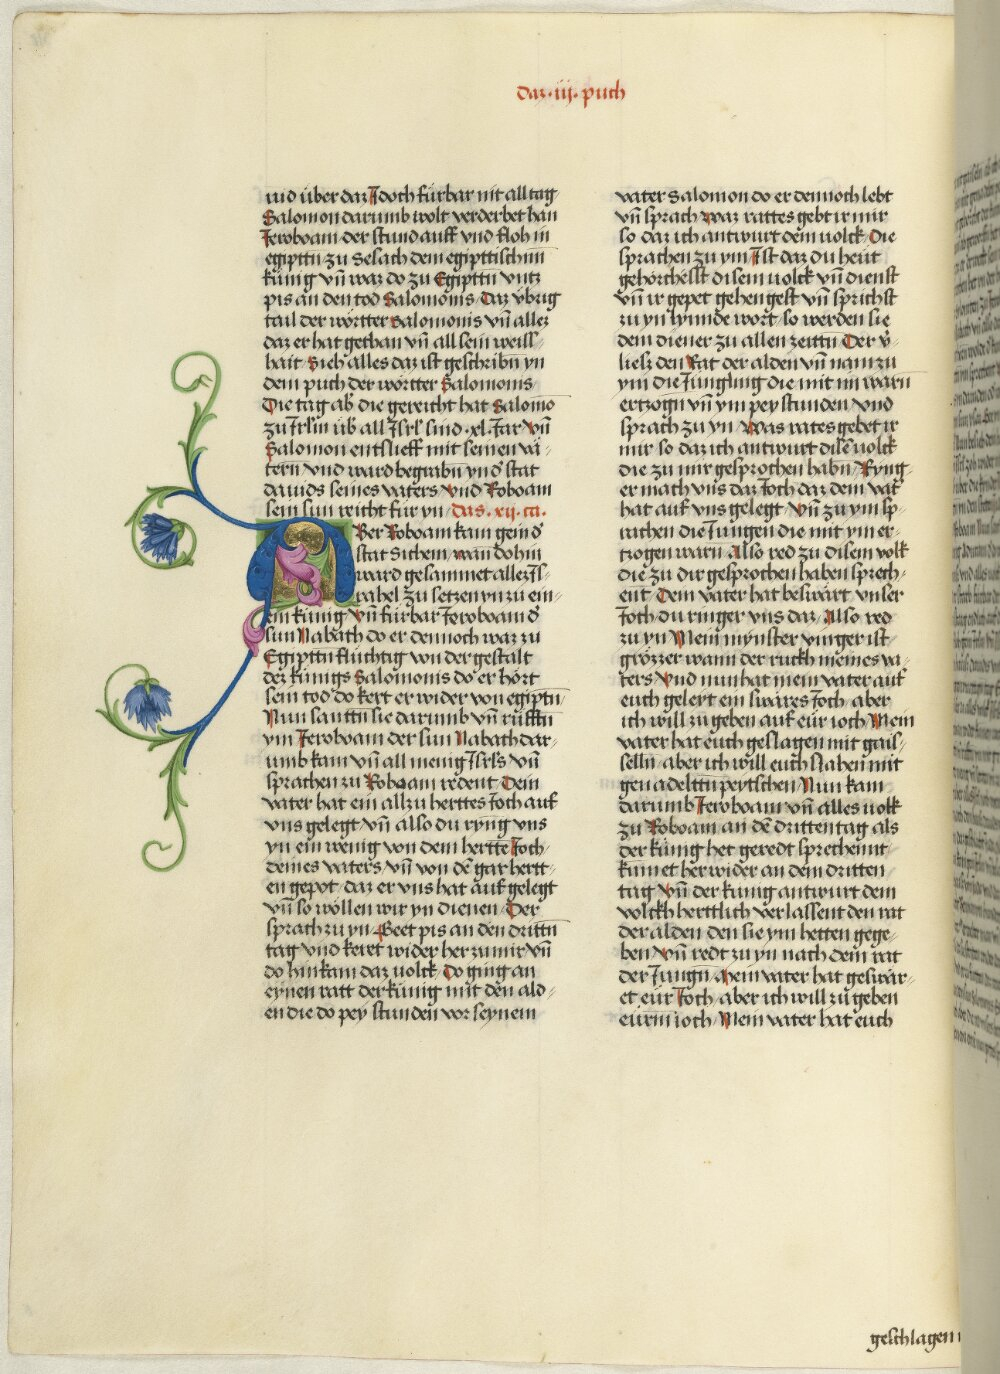 daz ·iij· puch
und über daz Jdoch fürbar nit all tag
Salomon darumb wolt verderbet han
Jeroboam der stund auff vnd floh in
egipttn zu Sesach dem egipttischin
künig vn̄ waz do zu Egipttn vntz
pis an den tod Salomonis Daz vbrig
tail der wörtter Salomonis vn̄ allez
daz er hat gethan vn̄ all sein weisz-
hait Sich alles daz ist geschribn̄ yn
dem puch der wörtter Salomonis
Die tag ab̄ die gereicht hat Salomo
zu Jrlm̄ üb̄ all Jsrl̄ sind ·xl· Jar Vn̄
Salomon entslieff mit seinen vä-
tern vnd ward begrabn̄ yn d̄ stat
dauids seines vaters Vnd Roboam
sein sun reicht für yn Das ·xij· ca·
Ber Roboam kam gein d̄
stat Sichem wan do hin
ward gesammet aller Js-
rahel zu setzen yn zu ein-
em künig Vn̄ fürbar Jeroboam d̄
sun Nabath do er dennoch waz zu
Egipttn flüchtig von der gestalt
dez künigs Salomons do er hört
sein tod do kert er wider von egiptn̄
Nun santtn sie darumb vn̄ rüfftn̄
ym Jeroboam der sun Nabath dar-
umb kam vn̄ all menig Jsrl̄s vn̄
sprachen zu Roboam redent Dein
vater hat ein allzu herttes Joch auf
vns gelegt vn̄ also du ryng vns
yn ein wenig von dem hertte Joch
deines vaters vn̄ von dē gar hertt-
en gepot daz er vns hat auf gelegt
vn̄ so wöllen wir yn dienen Der
sprach zu yn Geet pis an den drittn̄
tag vnd keret wider her zu mir Vn̄
do hin kam daz volck Do ging an
eynen ratt der künig mit den ald-
en die do pey stunden vor seynem
vater Salomon do er dennoch lebt
vn̄ sprach Waz rattes gebt ir mir
so daz ich antwurt dem volck Die
sprachen zu ym Jst daz du heut
gehörchesst disem volck vn̄ dienst
vn̄ ir gepet gehengest vn̄ sprichst
zu yn lynnde wort so werden sie
dem diener zu allen zeittn Der v̄-
liesz den Rat der alden vn̄ nam zu
ym die Jungling die mit im warn
ertzogn vn̄ ym pey stunden vnd
sprach zu yn Was rates gebet ir
mir so daz ich antwurt disē volck
die zu mir gesprochen habn̄ Ryng-
er mach vns daz Joch daz dein vat̄
hat auf vns gelegt Vn̄ zu ym sp-
rachen die Jungen die mit ym er-
tzogen warn Also red zu disem volk
die zu dir gesprochen haben sprech-
ent Dein vater hat beswärt vnser
Joch du ringer vns daz Also red
zu yn Mein mynster vinger ist
grözzer wann der ruckh meines va-
ters Vnd nun hat mein vater auf
euch gelert ein swäres Joch aber
ich will zu geben auf eür ioch Mein
vater hat euch geslagen mit gais-
selln aber ich will euch slahen mit
genadelttn peytschen Nun kam
darumb Jeroboam vn̄ alles volk
zu Roboam an dē dritten tag als
der künig het geredt sprechennt
kumet her wider an dem dritten
tag Vn̄ der kunig antwurt dem
volckh herttlich verlassent den rat
der alden den sie ym hetten gege-
ben Vn̄ redt zu yn nach dem rat
der Jungn Mein vater hat geswär-
et eur Joch aber ich will zu geben
eürm ioch Mein vater hat euch
geschlagen